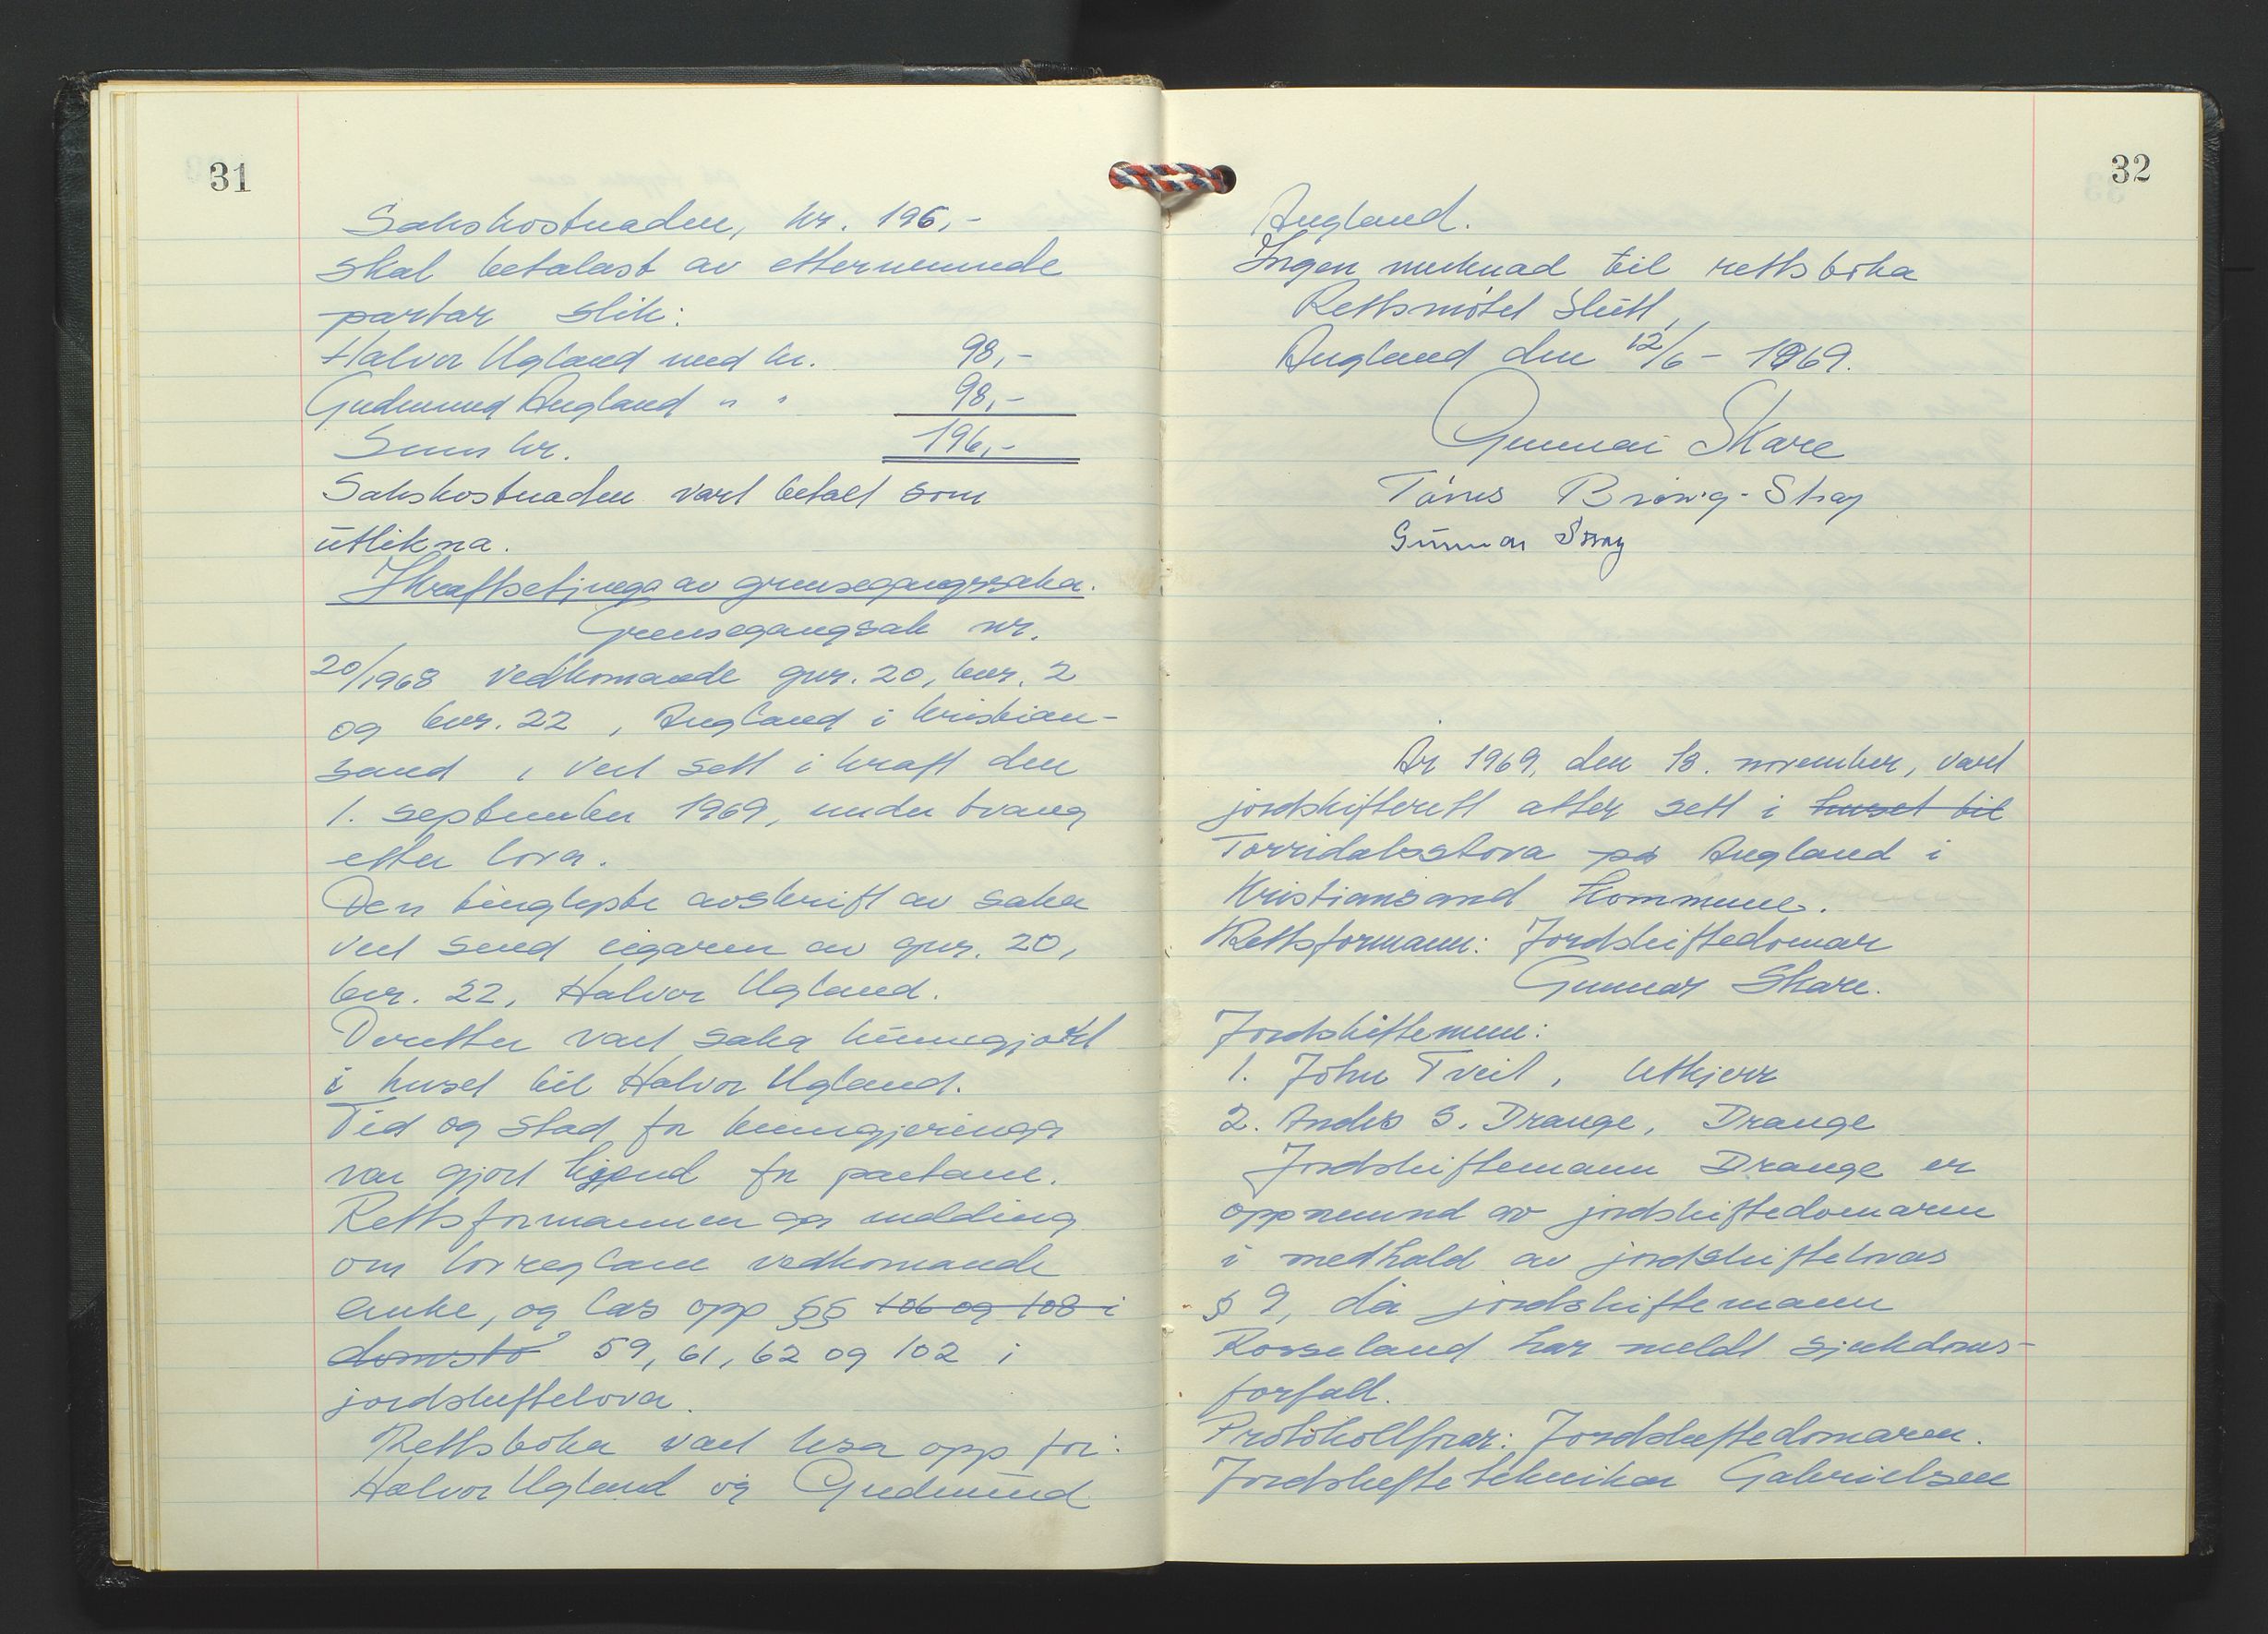 31
Sakskostnaden, kr. 196,-
skal betalast av etternemnde
partar slik:
Halvor Ugland med kr. 98,-
Gudmund Augland " " 98,-
Sum kr. 196,-
Sakskostnaden vart betalt som
utlikna.
Ikraftsetjinga av grensegangssaka.
Grensegangsak nr.
20/1968 vedkomande gnr. 20, bnr. 2
og bnr. 22, Augland i Kristian-
sand, vert sett i kraft den
1. september 1969, under tvang
etter lova.
Den tinglyste avskrift av saka
vert send eigaren av gnr. 20,
bnr. 22, Halvor Ugland.
Deretter vart saka kunngjort
i huset til Halvor Ugland.
Tid og stad for kunngjeringa
var gjort kjend for partane.
Rettsformannen ga melding
om lovreglane vedkomande
anke, og las opp §§ 106 og 108 i
domsto 59, 61, 62 og 102 i
jordskiftelova.
Rettsboka vart lesa opp for:
Halvor Ugland og Gudmund
32
Augland.
Ingen merknad til rettsboka
Rettsmøtet slutt,
Augland den 12/6 - 1969.
Gunnar Skare
Tønnes Brøvig-Stray
Gunnar Stray
År 1969, den 18. november, vart
jordskifterett atter sett i huset til
Torridalsstova på Augland i
Kristiansand kommune.
Rettsformann: Jordskiftedomar
Gunnar Skare.
Jordskiftemenn:
1. John Tveit, Utkjærr
2. Anders S. Drange, Drange
Jordskiftemann Drange er
oppnemnd av jordskiftedomaren
i medhald av jordskiftelovas
§ 9, då jordskiftemann
Rosseland har meldt sjukdoms-
forfall.
Protokollførar: Jordskiftedomaren.
Jordskifteteknikar Gabrielsen